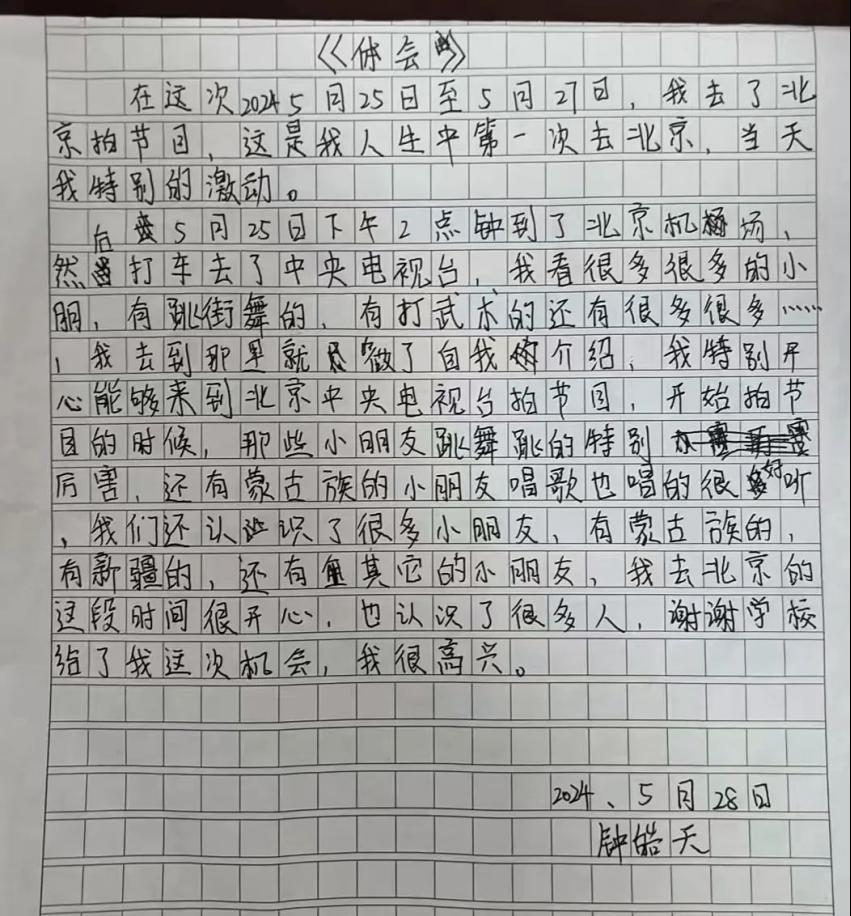 《体会》
在这次2024 5月25日至5月27日，我去了北
京拍节目，这是我人生中第一次去北京，当天
我特别的激动。
5月25日下午2点钟到了北京机场，
然后打车去了中央电视台，我看很多很多的小
朋，有跳街舞的，有打武术的还有很多很多……
，我去到那里就做了自我介绍，我特别开
心能够来到北京中央电视台拍节目，开始拍节
目的时候，那些小朋友跳舞跳的特别
厉害，还有蒙古族的小朋友唱歌也唱的很好听
，我们还认识了很多小朋友，有蒙古族的，
有新疆的，还有其它的小朋友，我去北京的
这段时间很开心，也认识了很多人，谢谢学校
给了我这次机会，我很高兴。
2024、5月28日
钟皓天